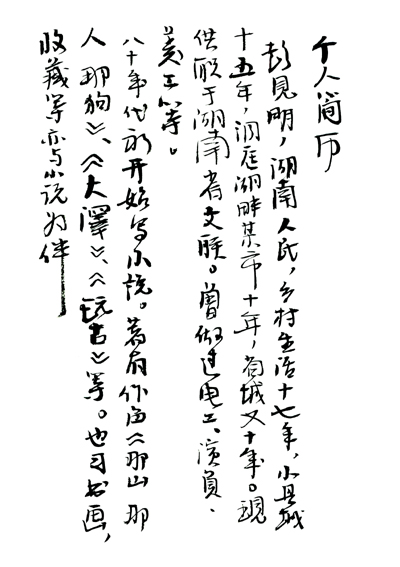 个人简历
彭见明，湖南人氏，乡村生活十七年，小县城
十五年，洞庭湖畔某市十年，省城又十年。现
供职于湖南省文联。曾做过电工、演员、
美工等。
八十年代初开始写小说。著有作品《那山 那
人 那狗》、《大澤》、《玩古》等。也习书画，
收藏等亦与小说为伴——